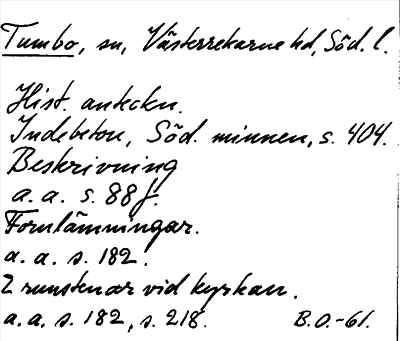 Tumbo, sn, Västerrekarne hd, Söd. l.
Hist. anteckn.
Indebetou, Söd. minnen, s. 404.
Beskrivning
a. a. s. 88 f.
Fornlämningar.
a. a. s. 182.
2 runstenar vid kyrkan.
a. a. s. 182, s. 218. B.O.-61.